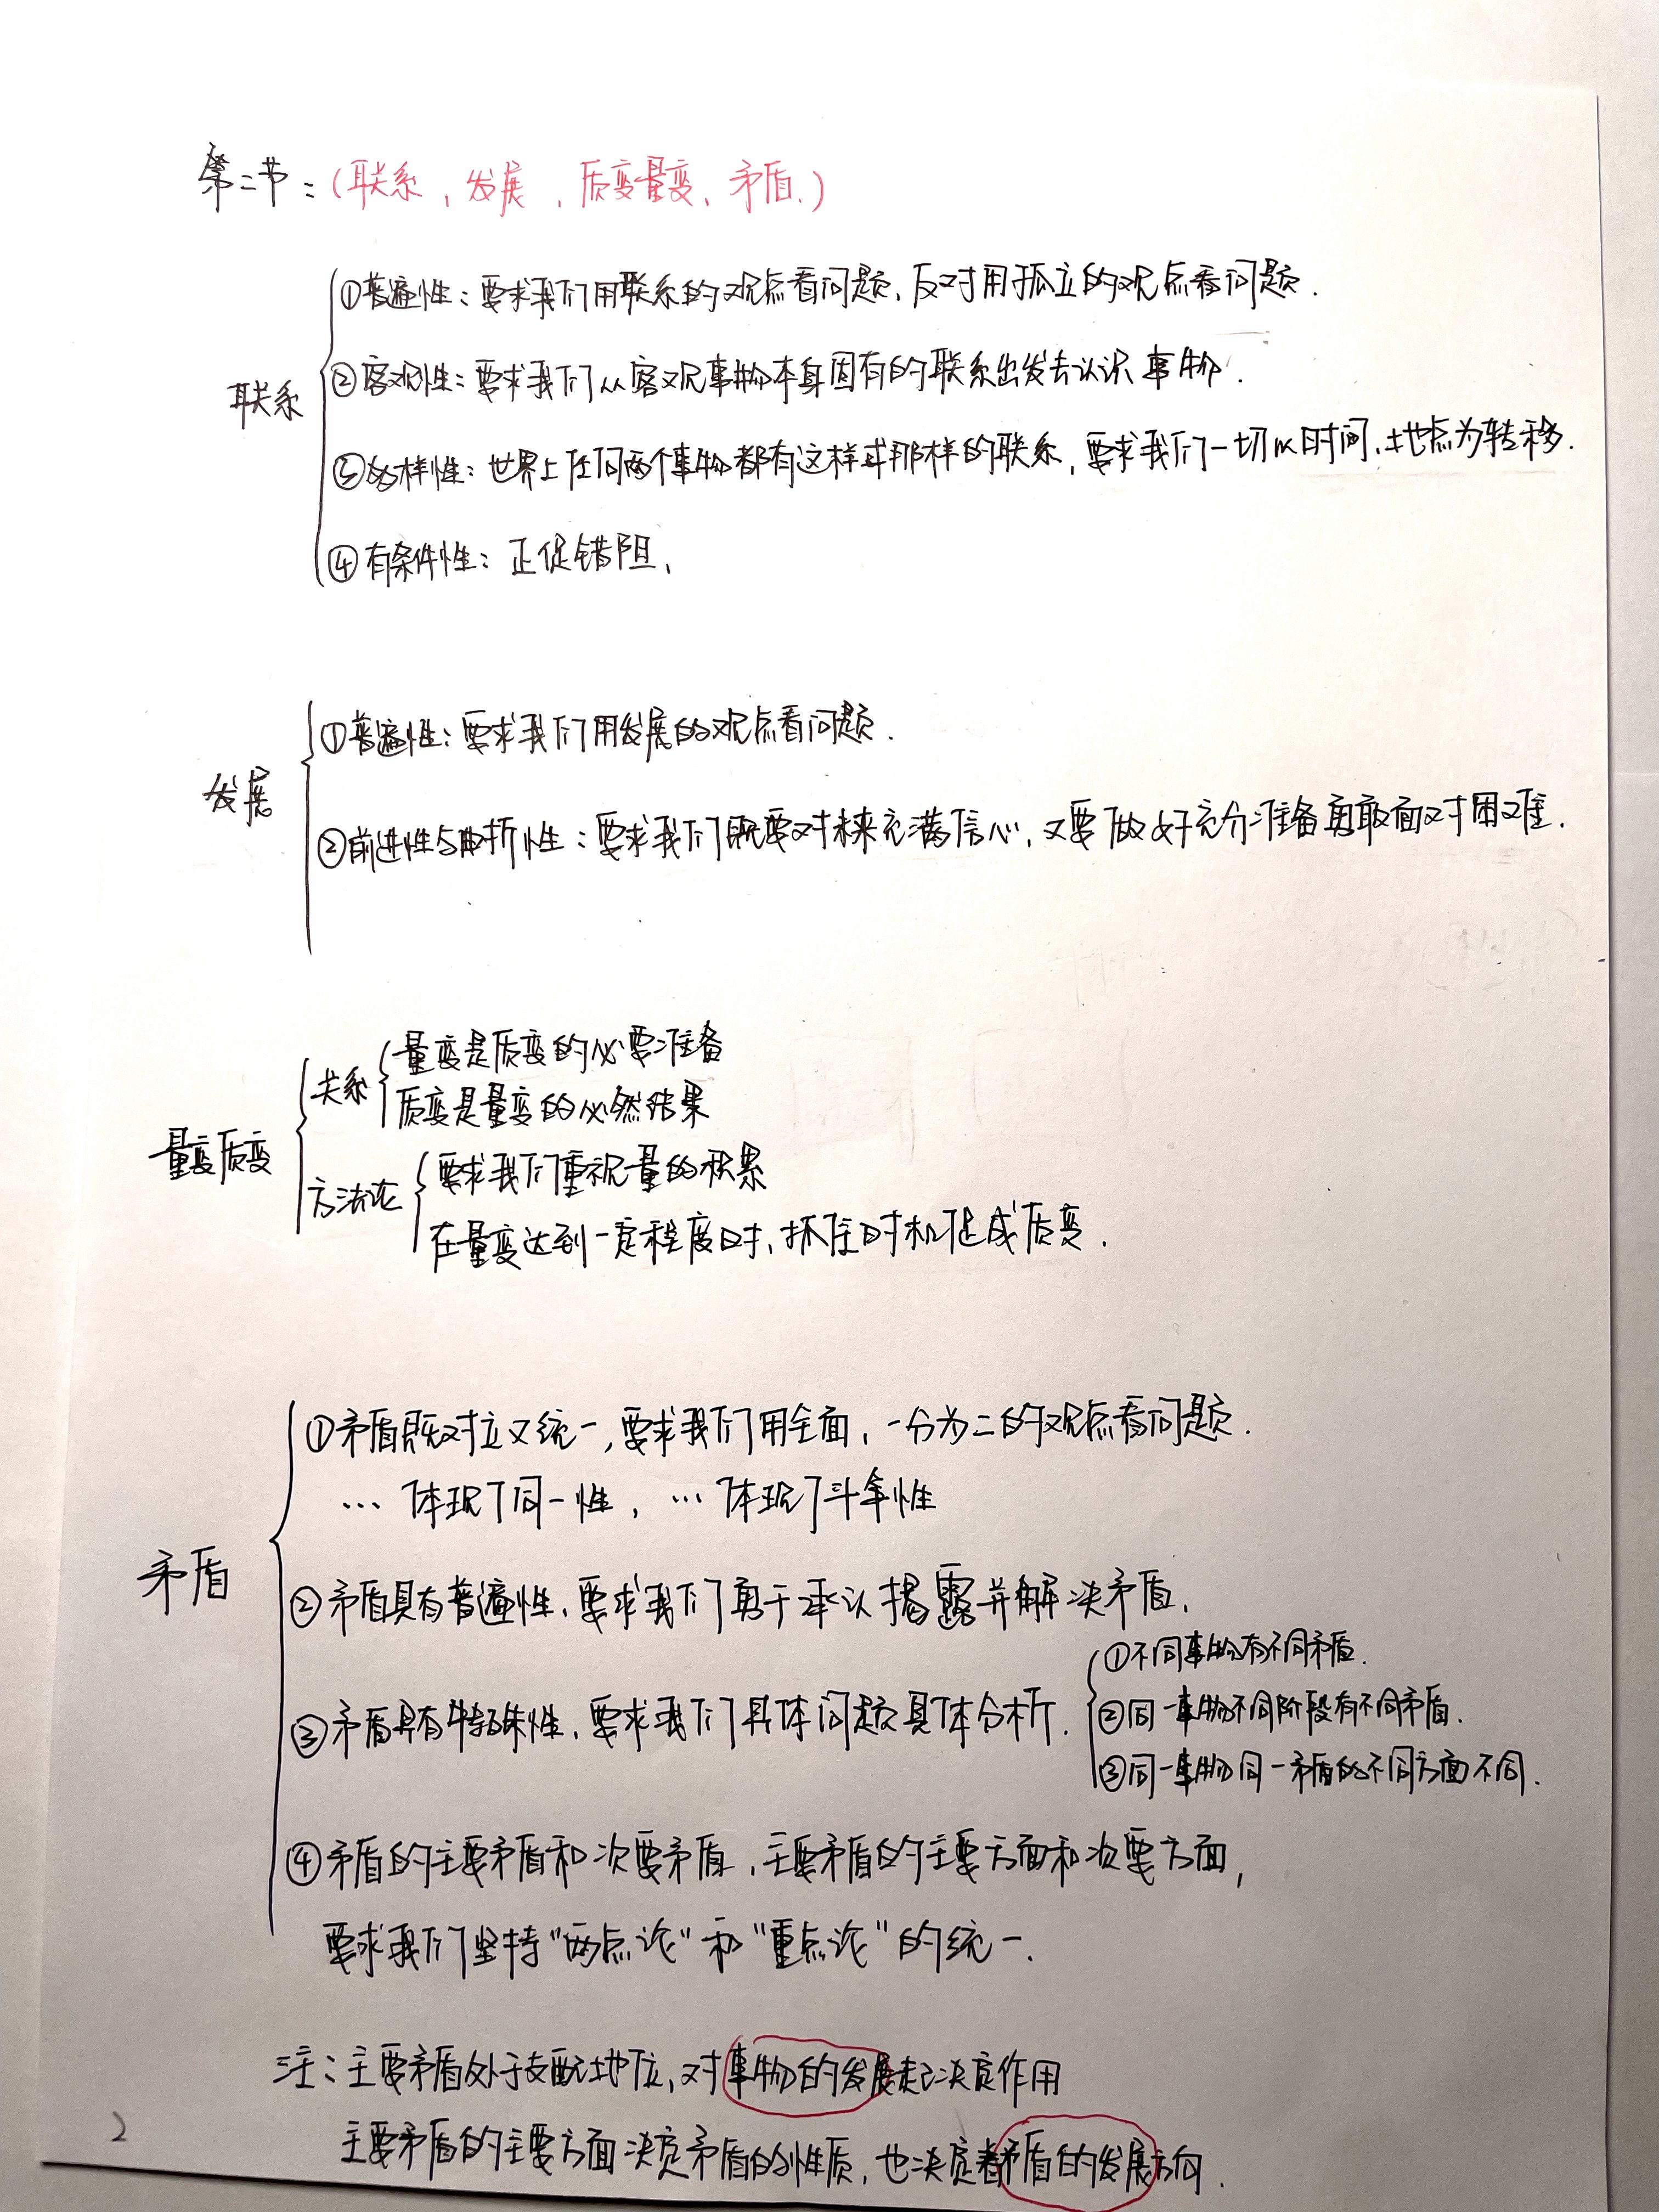 第二节：(联系，发展，质变量变，矛盾.)
①普遍性：要求我们用联系的观点看问题，反对用孤立的观点看问题.
②客观性：要求我们从客观事物本身固有的联系出发去认识事物.
联系
③多样性：世界上任何两个事物都有这样或那样的联系，要求我们一切以时间，地点为转移.
④有条件性：正促错阻，
①普遍性：要求我们用发展的观点看问题.
发展
②前进性与曲折性：要求我们既要对未来充满信心，又要做好充分准备勇敢面对困难.
量变是质变的必要准备
关系
质变是量变的必然结果
量变质变
要求我们重视量的积累
方法论
在量变达到一定程度时，抓住时机促成质变.
①矛盾既对立又统一，要求我们用全面，一分为二的观点看问题.
… 体现了同一性，… 体现了斗争性
矛盾
②矛盾具有普遍性，要求我们勇于承认揭露并解决矛盾，
③矛盾具有特殊性，要求我们具体问题具体分析.
①不同事物有不同矛盾.
②同一事物不同阶段有不同矛盾.
③同一事物同一矛盾的不同方面不同.
④矛盾的主要矛盾和次要矛盾，主要矛盾的主要方面和次要方面，
要求我们坚持“两点论”和“重点论”的统一.
注：主要矛盾处于支配地位，对事物的发展起决定作用
主要矛盾的主要方面决定矛盾的性质，也决定着矛盾的发展方向.
2